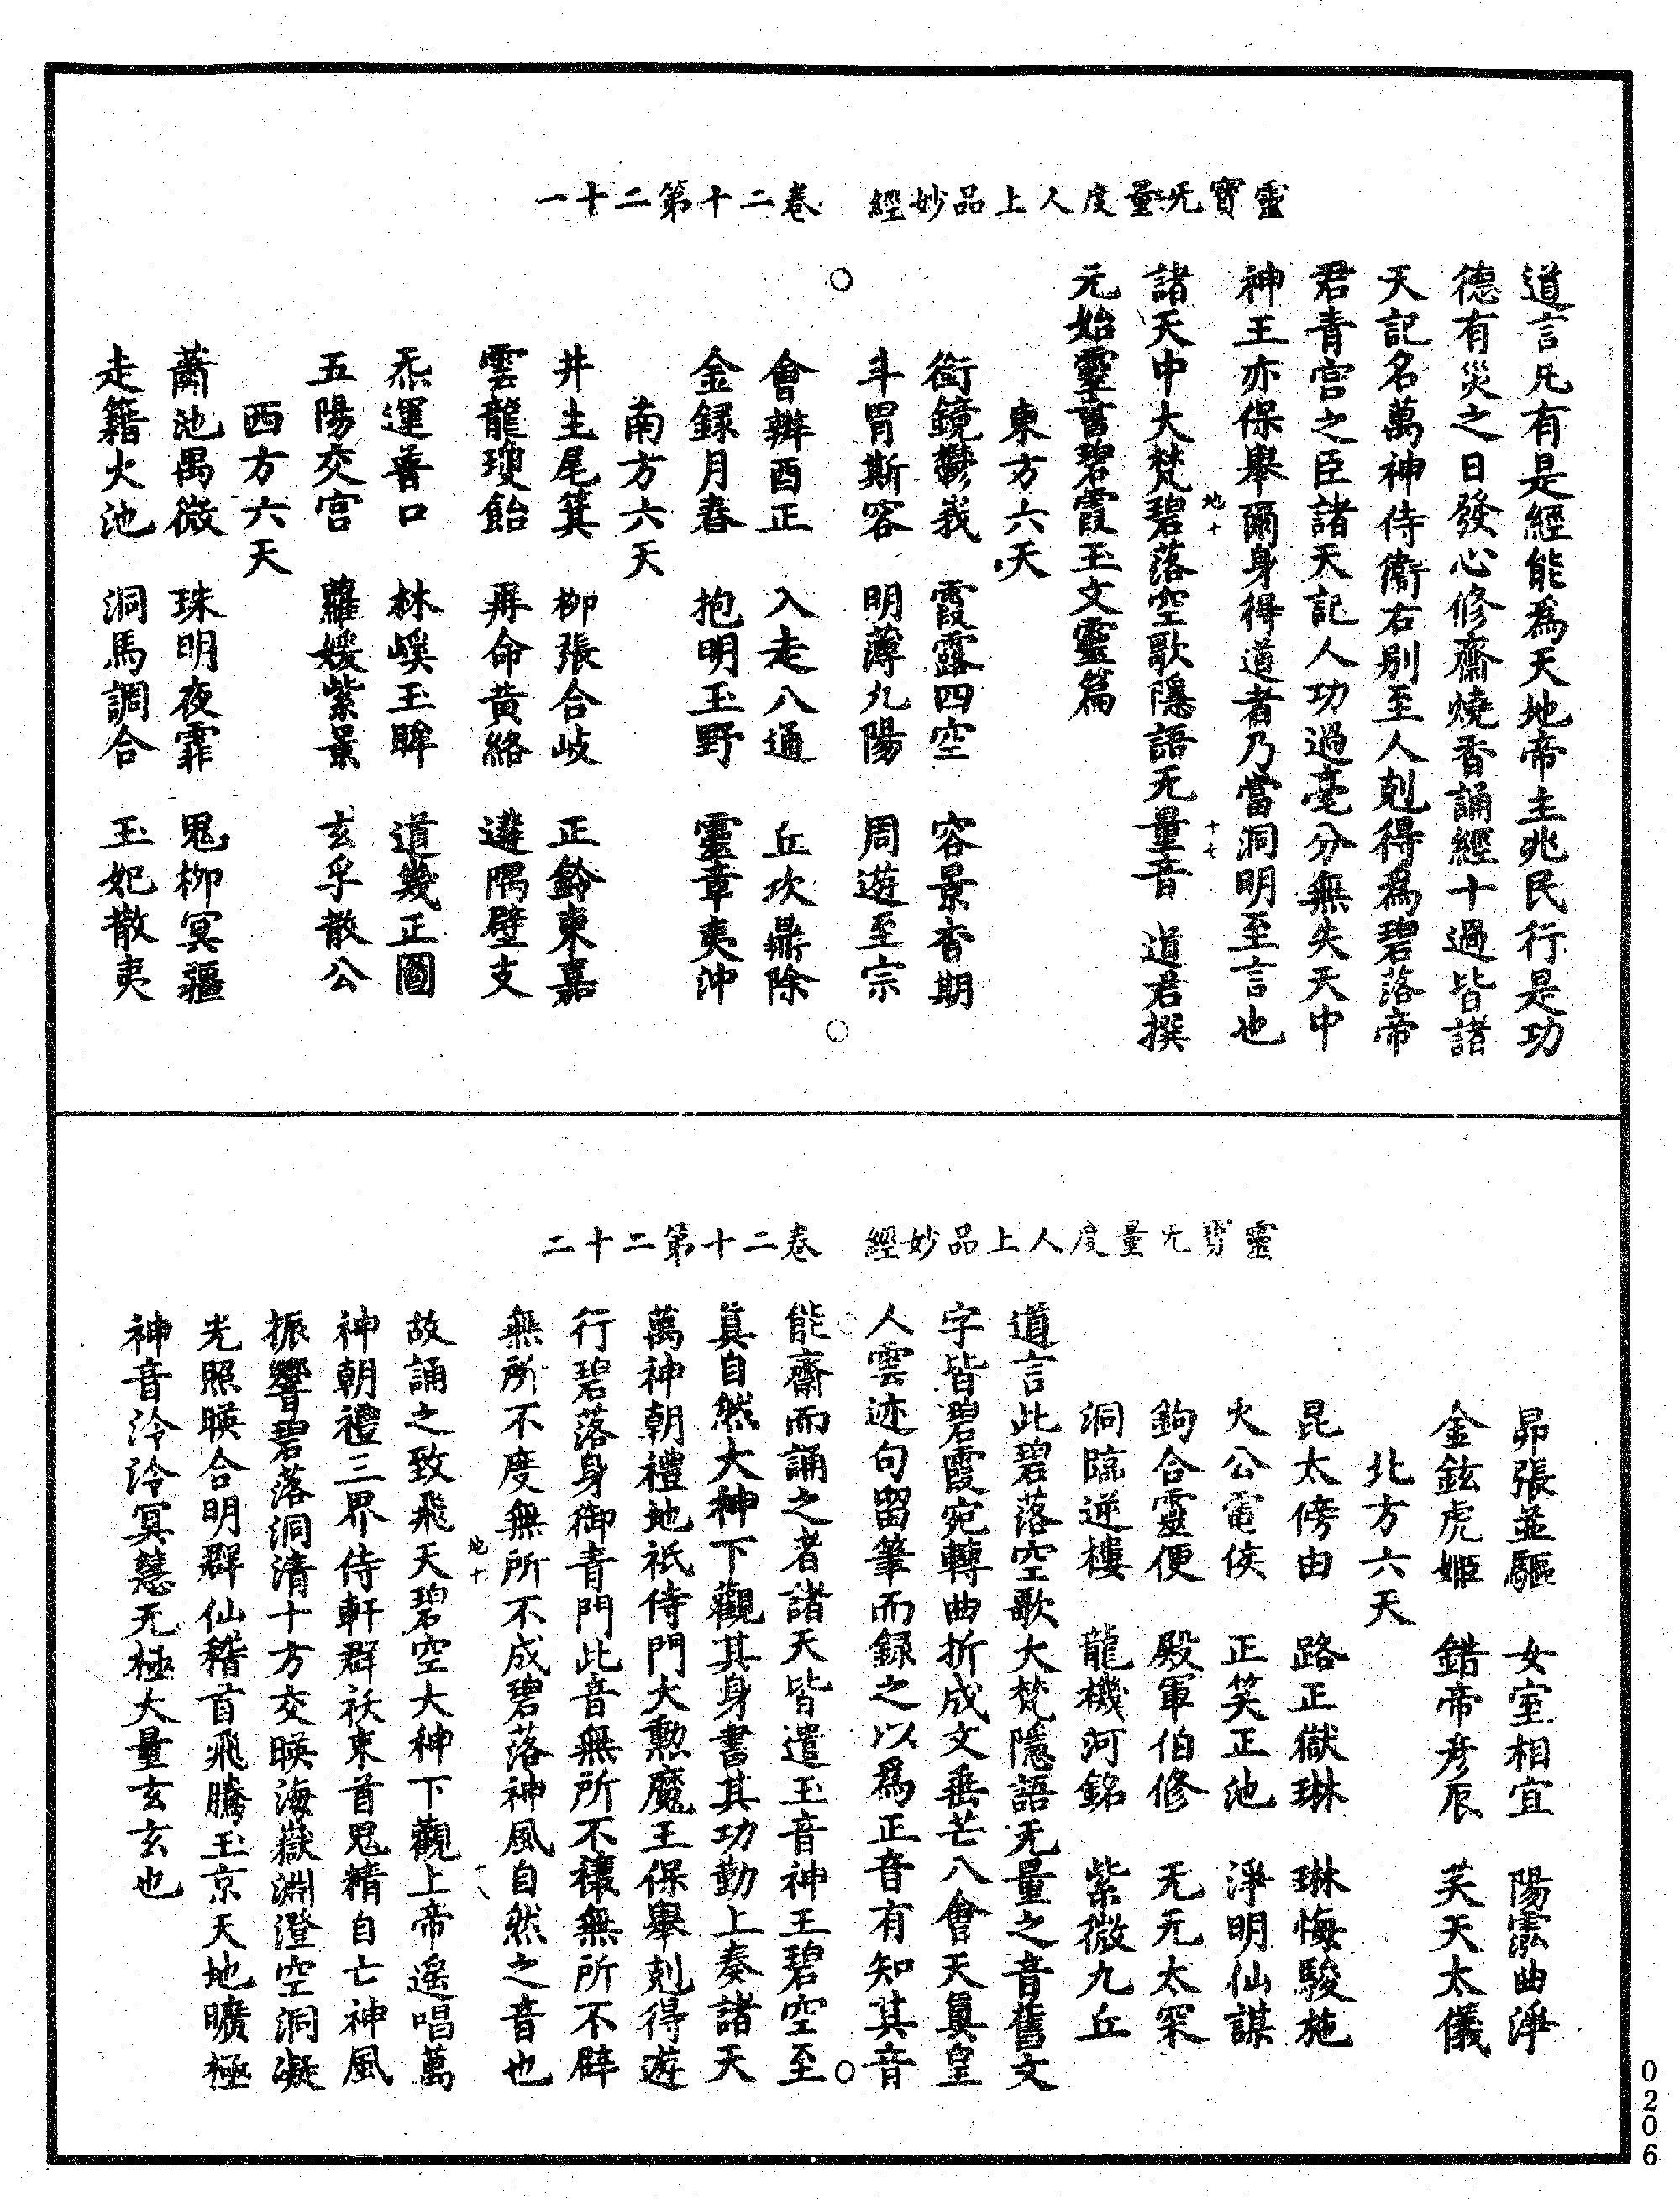 靈寶无量度人上品妙經　卷二十第二十一
道言凡有是經能爲天地帝主兆民行是功
德有災之日發心修齋燒香誦經十過皆諸
天記名萬神侍衞右別至人剋得爲碧落帝
君青宮之臣諸天記人功過毫分無失天中
神王亦保舉爾身得道者乃當洞明至言也
地十　十七
諸天中大梵碧落空歌隱語无量音　道君撰
元始靈書碧霞玉文靈篇
東方六天
銜鏡鬱峩　霞露四空　容景杳期
斗胃斯客　明薄九陽　周遊至宗
會辦酉正　入走八通　丘坎鼎除
金録月春　抱明玉野　靈章夷沖
南方六天
井土尾箕　柳張合岐　正鈴東嘉
雲龍瓊飴　再命黃絡　遴隅壁支
炁運普口　林嵠玉眸　道幾正圖
五陽交宮　蘿媛紫景　玄孚散公
西方六天
蕭池禺微　珠明夜霏　鬼柳冥疆
走籍火池　洞馬調合　玉妃散夷
靈寶无量度人上品妙經　卷二十第二十二
昴張並驅　女室相宜　陽雲曲淨
金鉉虎姬　錯帝彦辰　芙天太儀
北方六天
昆太傍由　路正獄琳　琳悔駿施
火公電侯　正笑正池　淨明仙謀
鉤合靈便　殿軍伯修　无元太罙
洞臨逆樓　龍機河銘　紫微九丘
道言此碧落空歌大梵隱語无量之音舊文
字皆碧霞宛轉曲折成文垂芒八會天眞皇
人雲迹句留筆而録之以爲正音有知其音
能齋而誦之者諸天皆遣玉音神王碧空至
眞自然大神下觀其身書其功勤上奏諸天
萬神朝禮地祇侍門大勲魔王保舉剋得遊
行碧落身御青門此音無所不禳無所不辟
無所不度無所不成碧落神風自然之音也
地十　十八
故誦之致飛天碧空大神下觀上帝遙唱萬
神朝禮三界侍軒群祅束首鬼精自亡神風
振響碧落洞清十方交暎海嶽淵澄空洞凝
光照暎合明群仙稽首飛騰玉京天地曠極
神音泠泠冥慧无極大量玄玄也
0206